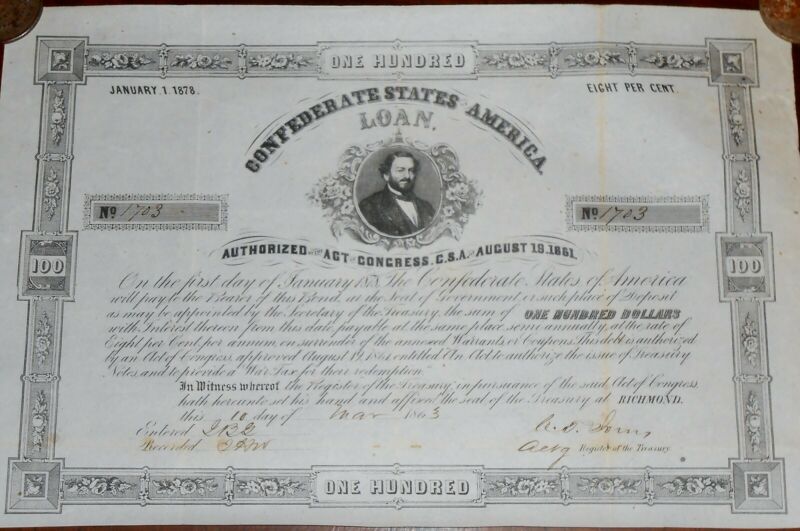 ONE HUNDRED
JANUARY. 1. 1878.
EIGHT PER CENT.
CONFEDERATE STATES OF AMERICA.
LOAN.
No 1703
No 1703
AUTHORIZED BY THE ACT OF CONGRESS, C.S.A. OF AUGUST 19. 1861.
100
100
On the first day of January 1878, The Confederate States of America
will pay to the Bearer of this Bond, at the seat of Government, or such place of Deposit
as may be appointed by the Secretary of the Treasury, the sum of ONE HUNDRED DOLLARS
with Interest thereon from this date, payable at the same place semi-annually, at the rate of
Eight per Cent. per annum, on surrender of the annexed Warrants or Coupons. This debt is authorized
by an Act of Congress, approved August 19, 1861, entitled An Act to authorize the issue of Treasury
Notes, and to provide a War Tax for their redemption.
In Witness whereof the Register of the Treasury, in pursuance of the said Act of Congress,
hath hereunto set his hand and affixed the seal of the Treasury at RICHMOND,
this 10 day of Mar 1863
Entered
Recorded
Actg Register of the Treasury
ONE HUNDRED